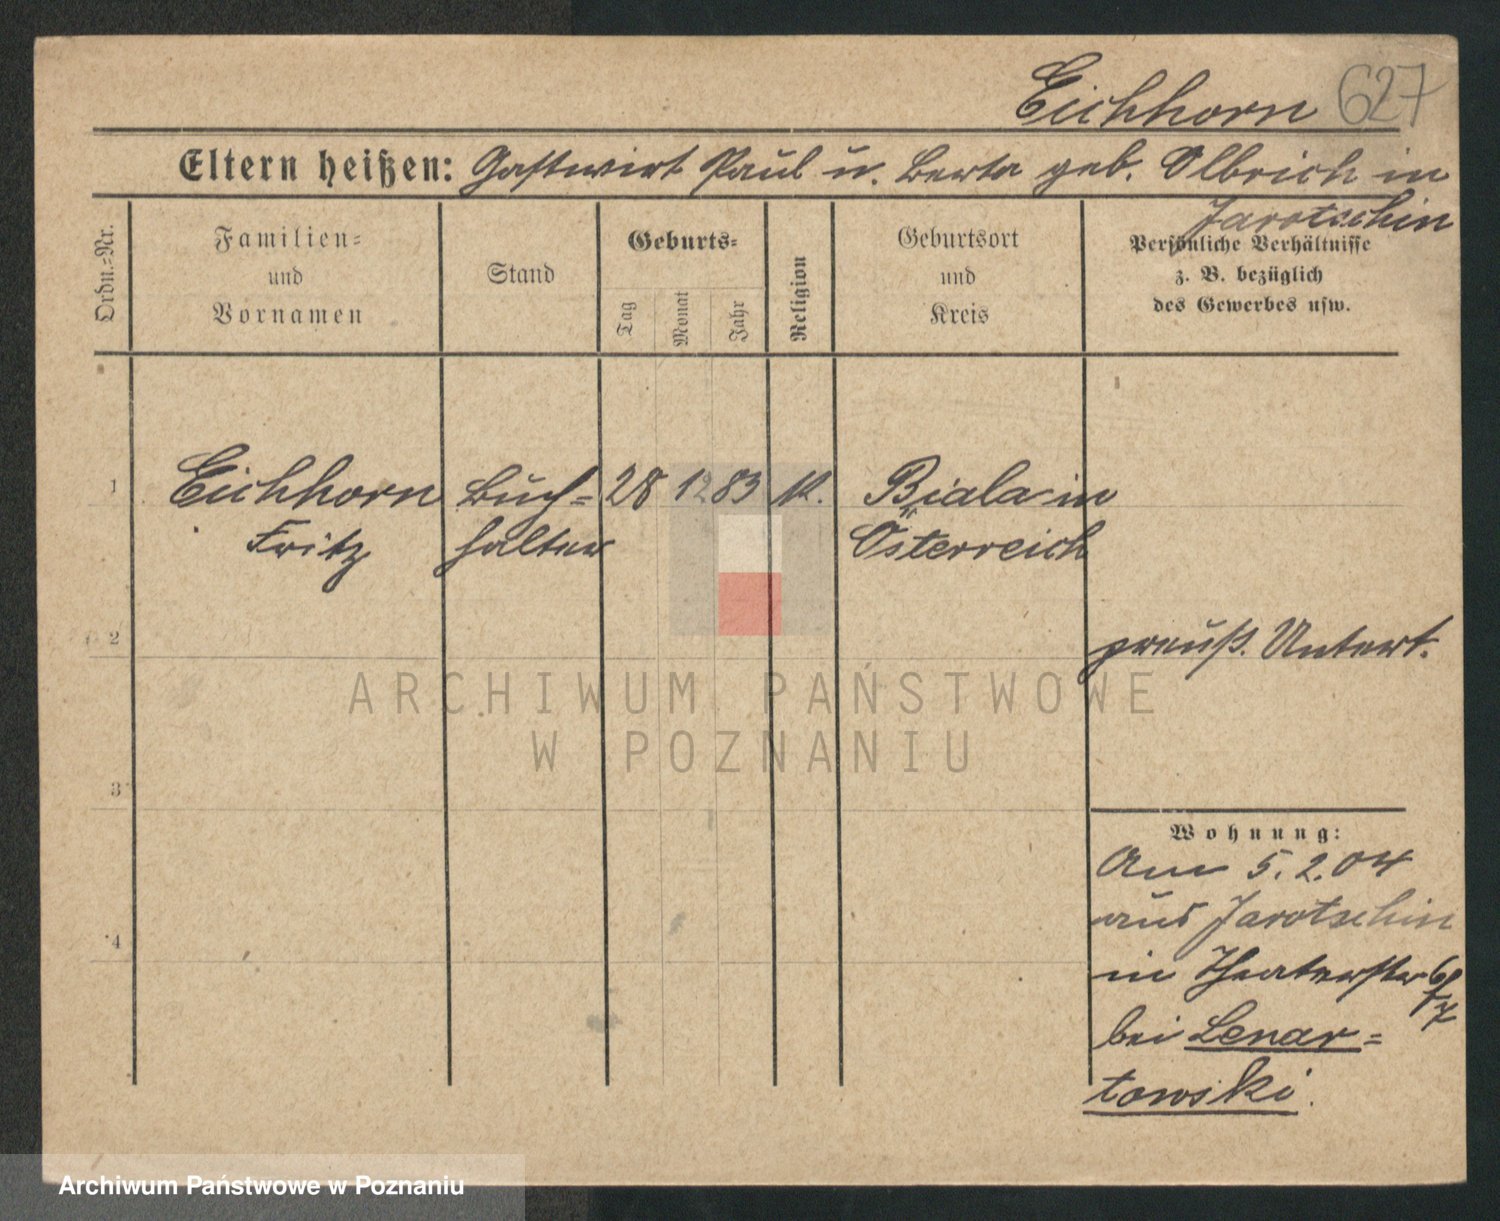 Eichhorn 627
Eltern heißen: Gastwirt Paul u. Berta geb. Olbrich in
Jarotschin
Ordn.-Nr.
Familien-
und
Vornamen
Stand
Geburts-
Tag
Monat
Jahr
Religion
Geburtsort
und
Kreis
Persönliche Verhältnisse
z. B. bezüglich
des Gewerbes usw.
1 Eichhorn Buch= 28 12 83 k. Biala in
Fritz halter Österreich
2
preuß. Untert.
3
4
Wohnung:
Am 5.2.04
aus Jarotschin
in Theaterstr 6/7
bei Lenar=
towski.
ARCHIWUM PAŃSTWOWE
W POZNANIU
Archiwum Państwowe w Poznaniu